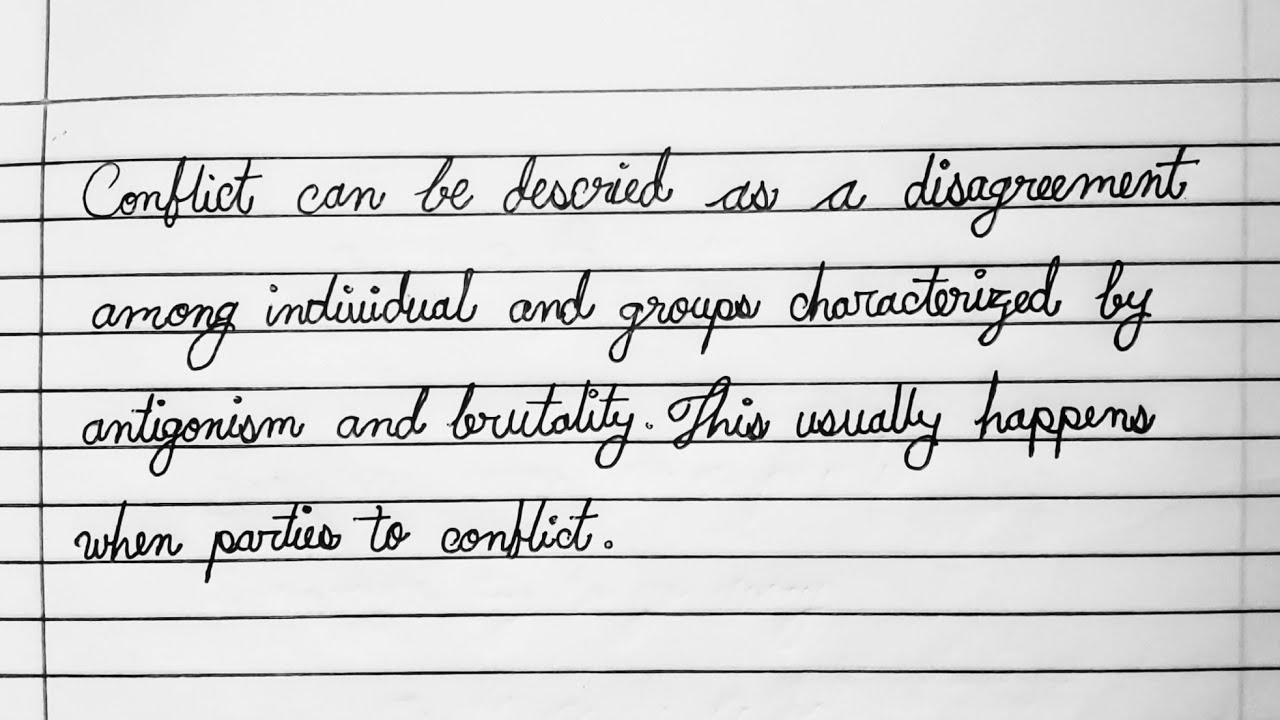 Conflict can be descried as a disagreement
among individual and groups characterized by
antigonism and brutality. This usually happens
when parties to conflict.